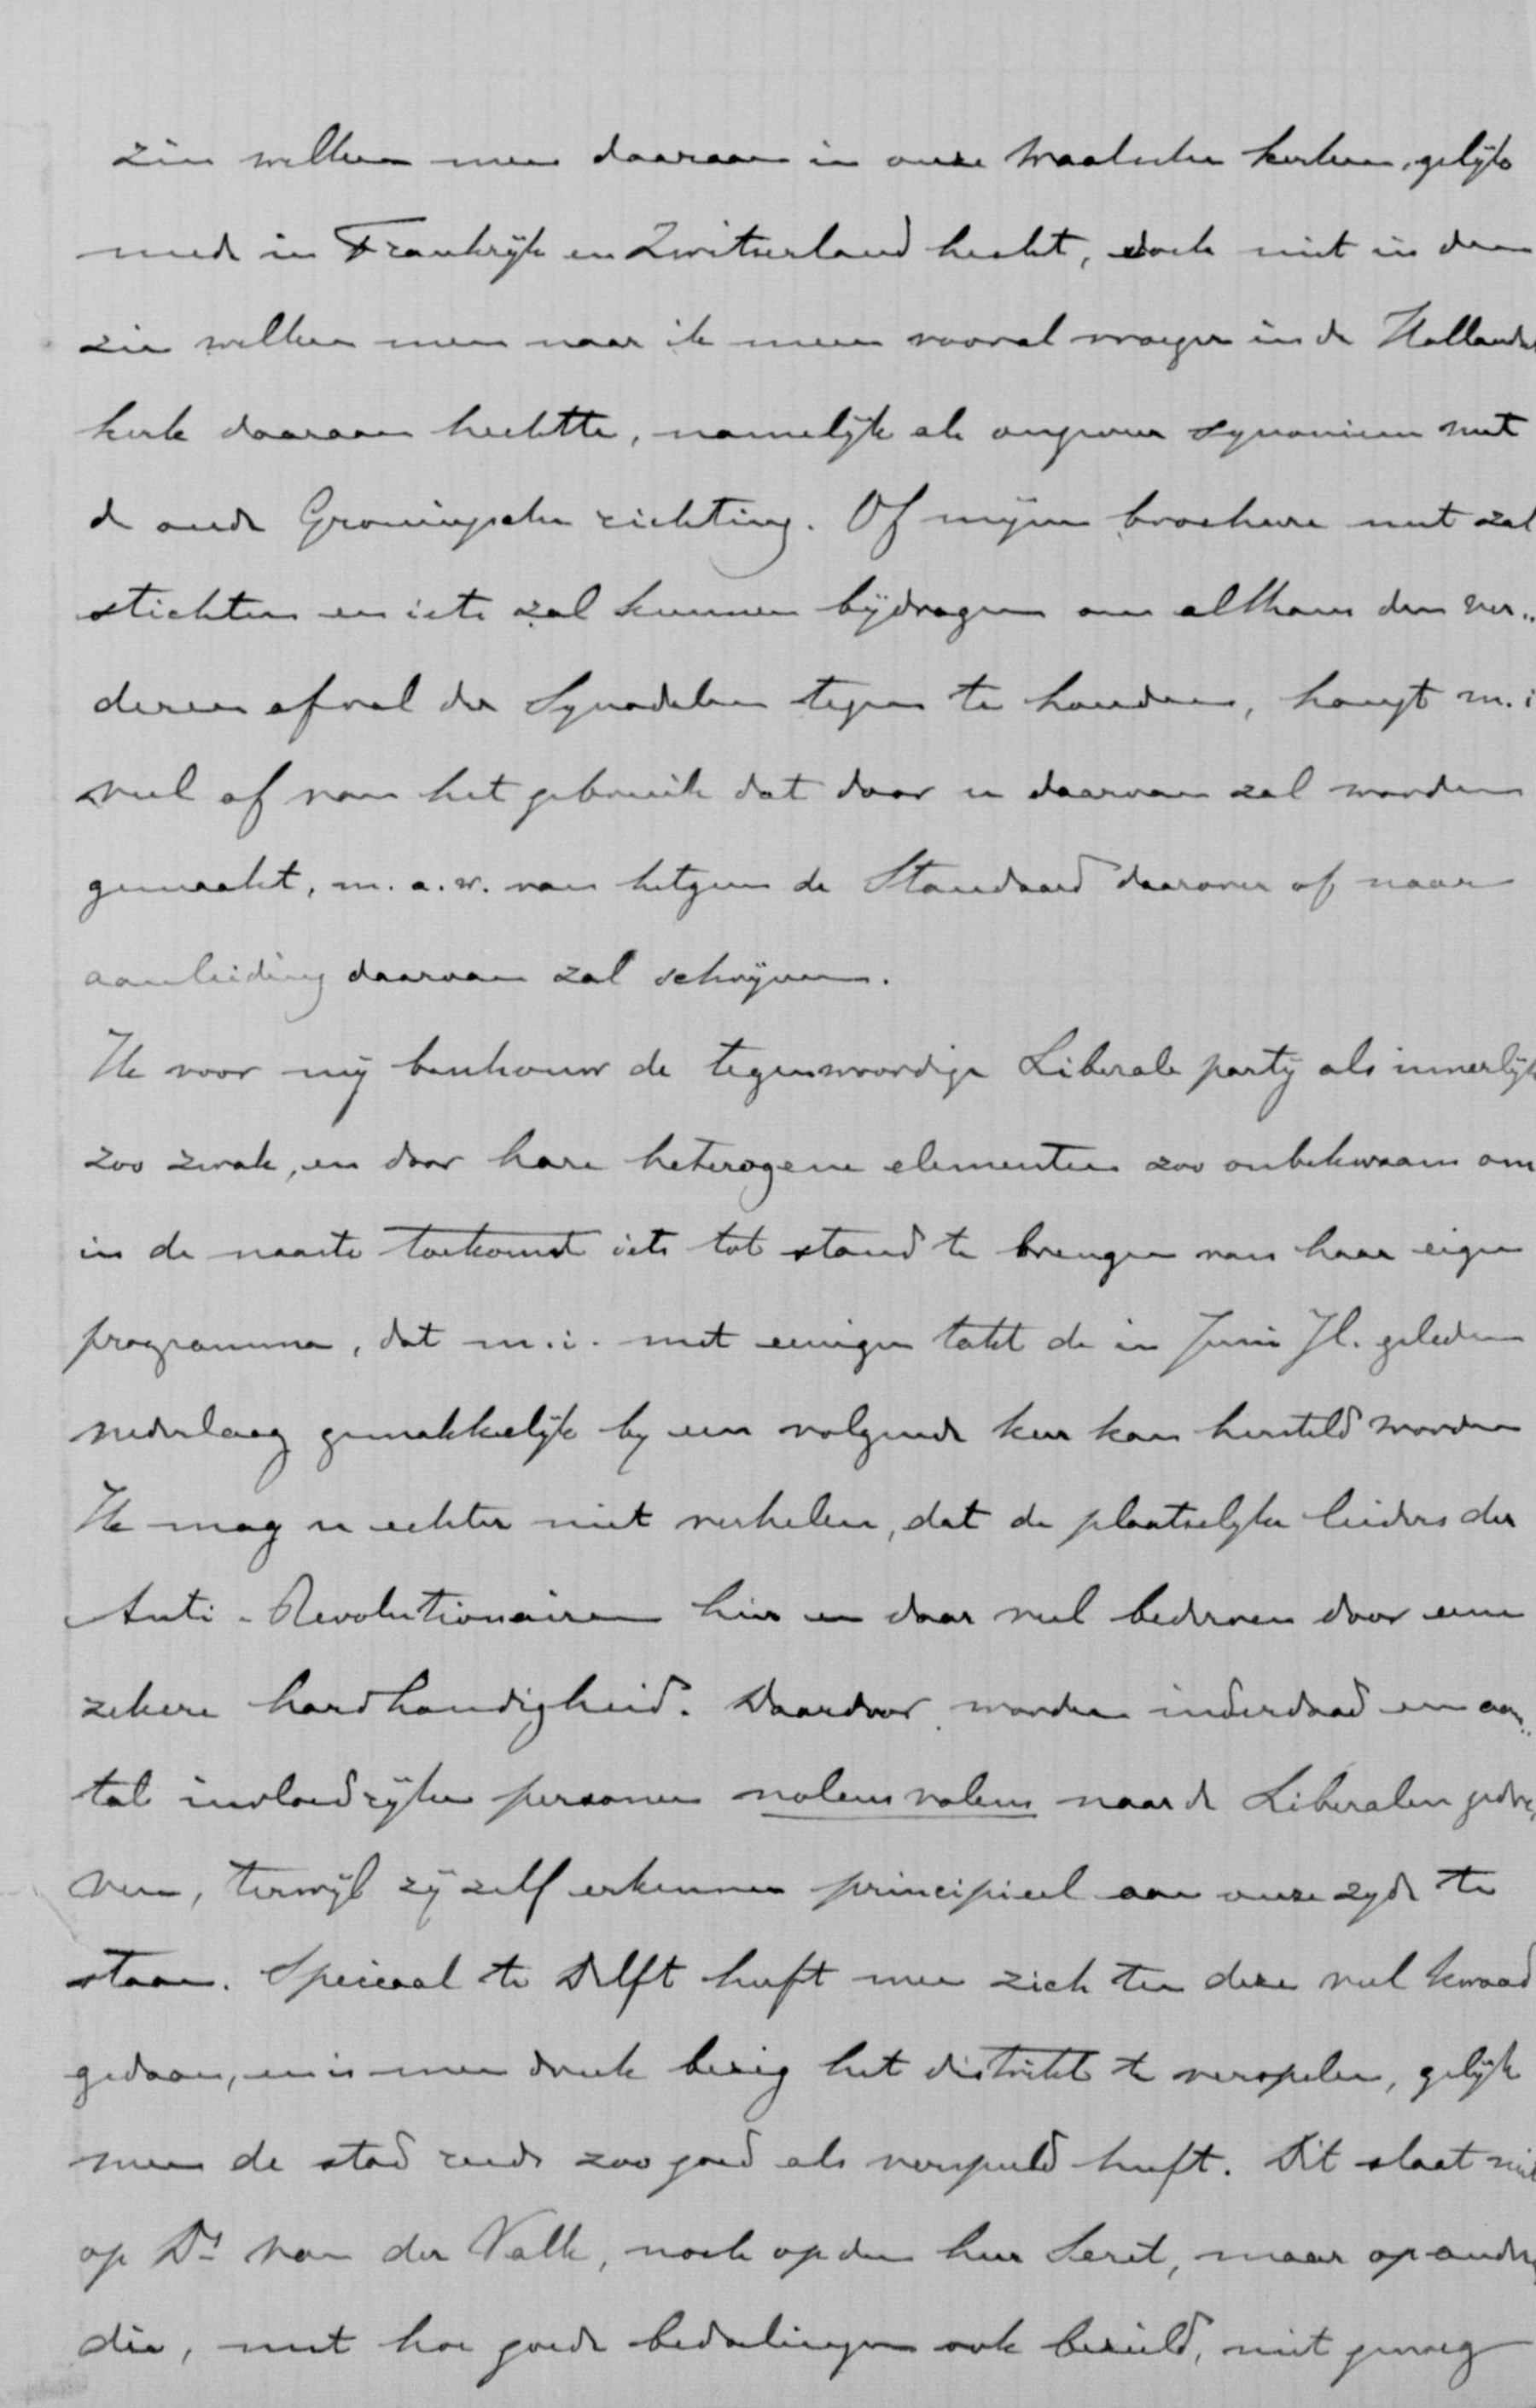 zin welken men daaraan in onze Waalsche kerken, gelijk
mede in Frankrijk en Zwitserland hecht, doch niet in den
zin welken men naar ik meen vooral vroeger in de Hollandsche
kerk daaraan hechtte, namelijk als ongeveer synoniem met
de oude Groningsche richting. Of mijne brochure nut zal
stichten en iets zal kunnen bijdragen om althans den ver„
deren afval der Synodalen tegen te houden, hangt m.i.
veel af van het gebruik dat door u daarvan zal worden
gemaakt, m.a.w. van hetgeen de Standaard daarover of naar
aanleiding daarvan zal schrijven.
Ik voor mij beschouw de tegenwoordige Liberale partij als innerlijk
zoo zwak, en door hare heterogene elementen zoo onbekwaam om
in de naaste toekomst iets tot stand te brengen van haar eigen
programma, dat m.i. met eenigen takt de in Juni Jl. geleden
nederlaag gemakkelijk bij een volgende keer kan hersteld worden
Ik mag u echter niet verhelen, dat de plaatselijke leiders der
Anti-Revolutionairen hier en daar veel bederven door eene
zekere hardhandigheid. Daardoor worden inderdaad een aan„
tal invloedrijken personen nolens volens naar de Liberalen gedre„
ven, terwijl zij zelf erkennen principieel aan onze zijde te
staan. Speciaal te Delft heeft men zich ten deze veel kwaad
gedaan, en is men druk bezig het distrikt te verspelen, gelijk
men de stad reeds zoo goed als verspeeld heeft. Dit slaat niet
op Ds van der Valk, noch op den heer Seret, maar op andere,
die, met hoe goede bedoelingen ook bezield, niet genoeg